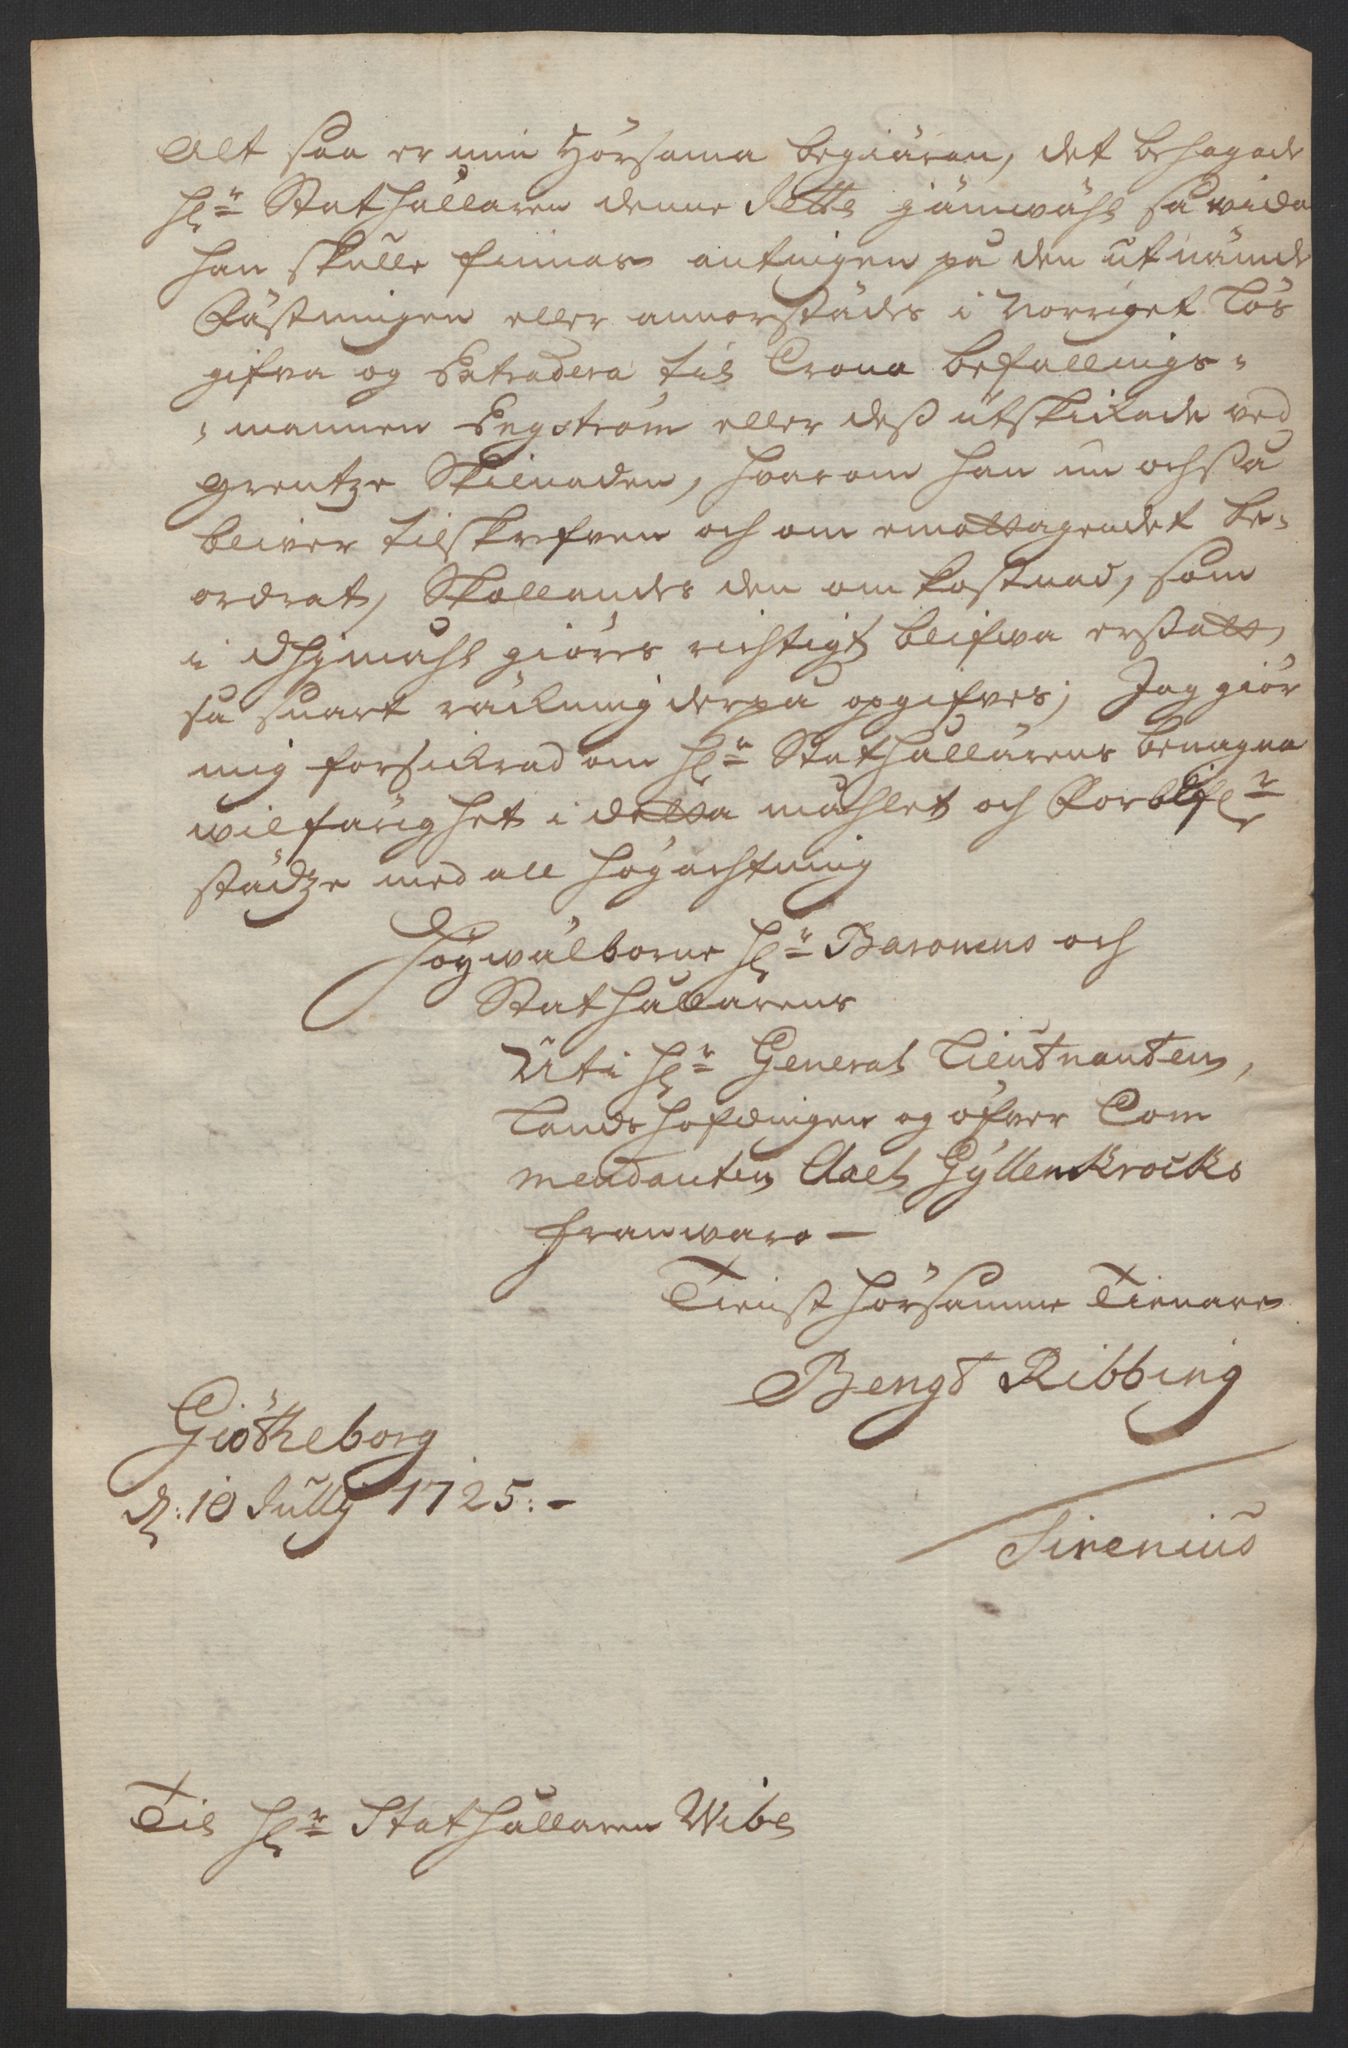 Alt saa er min Hörsama begiäran, det behagade
Hr Stathållaren denne Jette jämwähl så wida
han skulle finnas antingen på den utnämde
Fästningen eller annorstädes i Norriget Lös
gifva og Extradera til Crono befallnings-
-mannen Engström eller dess utskickade ved
grentze Skilnaden, hvarom han nu ochså
bliver tilskrefven och om emottagendet be-
ordrat, Skollandes den omkostnad, som
i giöres richtigt blifwa ersatt,
så snart räkning derpå opgifves; Jag giör
mig forsickrad om Hr Stathallärens benägna
wilfärighet i detta mählet och Forblifr
städze med all högachtning
Högwälborne Hr Baronens och
Stathållärens
Uti Hr General Lieutnantens,
Landshöfdingen og öfver Com
mendanten Axel Gyllenkrocks
franwaro —
Tienst hörsamme Tienare
Bengt Ribbing
Giötheborg
d. 10 Jullÿ 1725. -
Sirenius
Til Hr Stathallaren Wibe